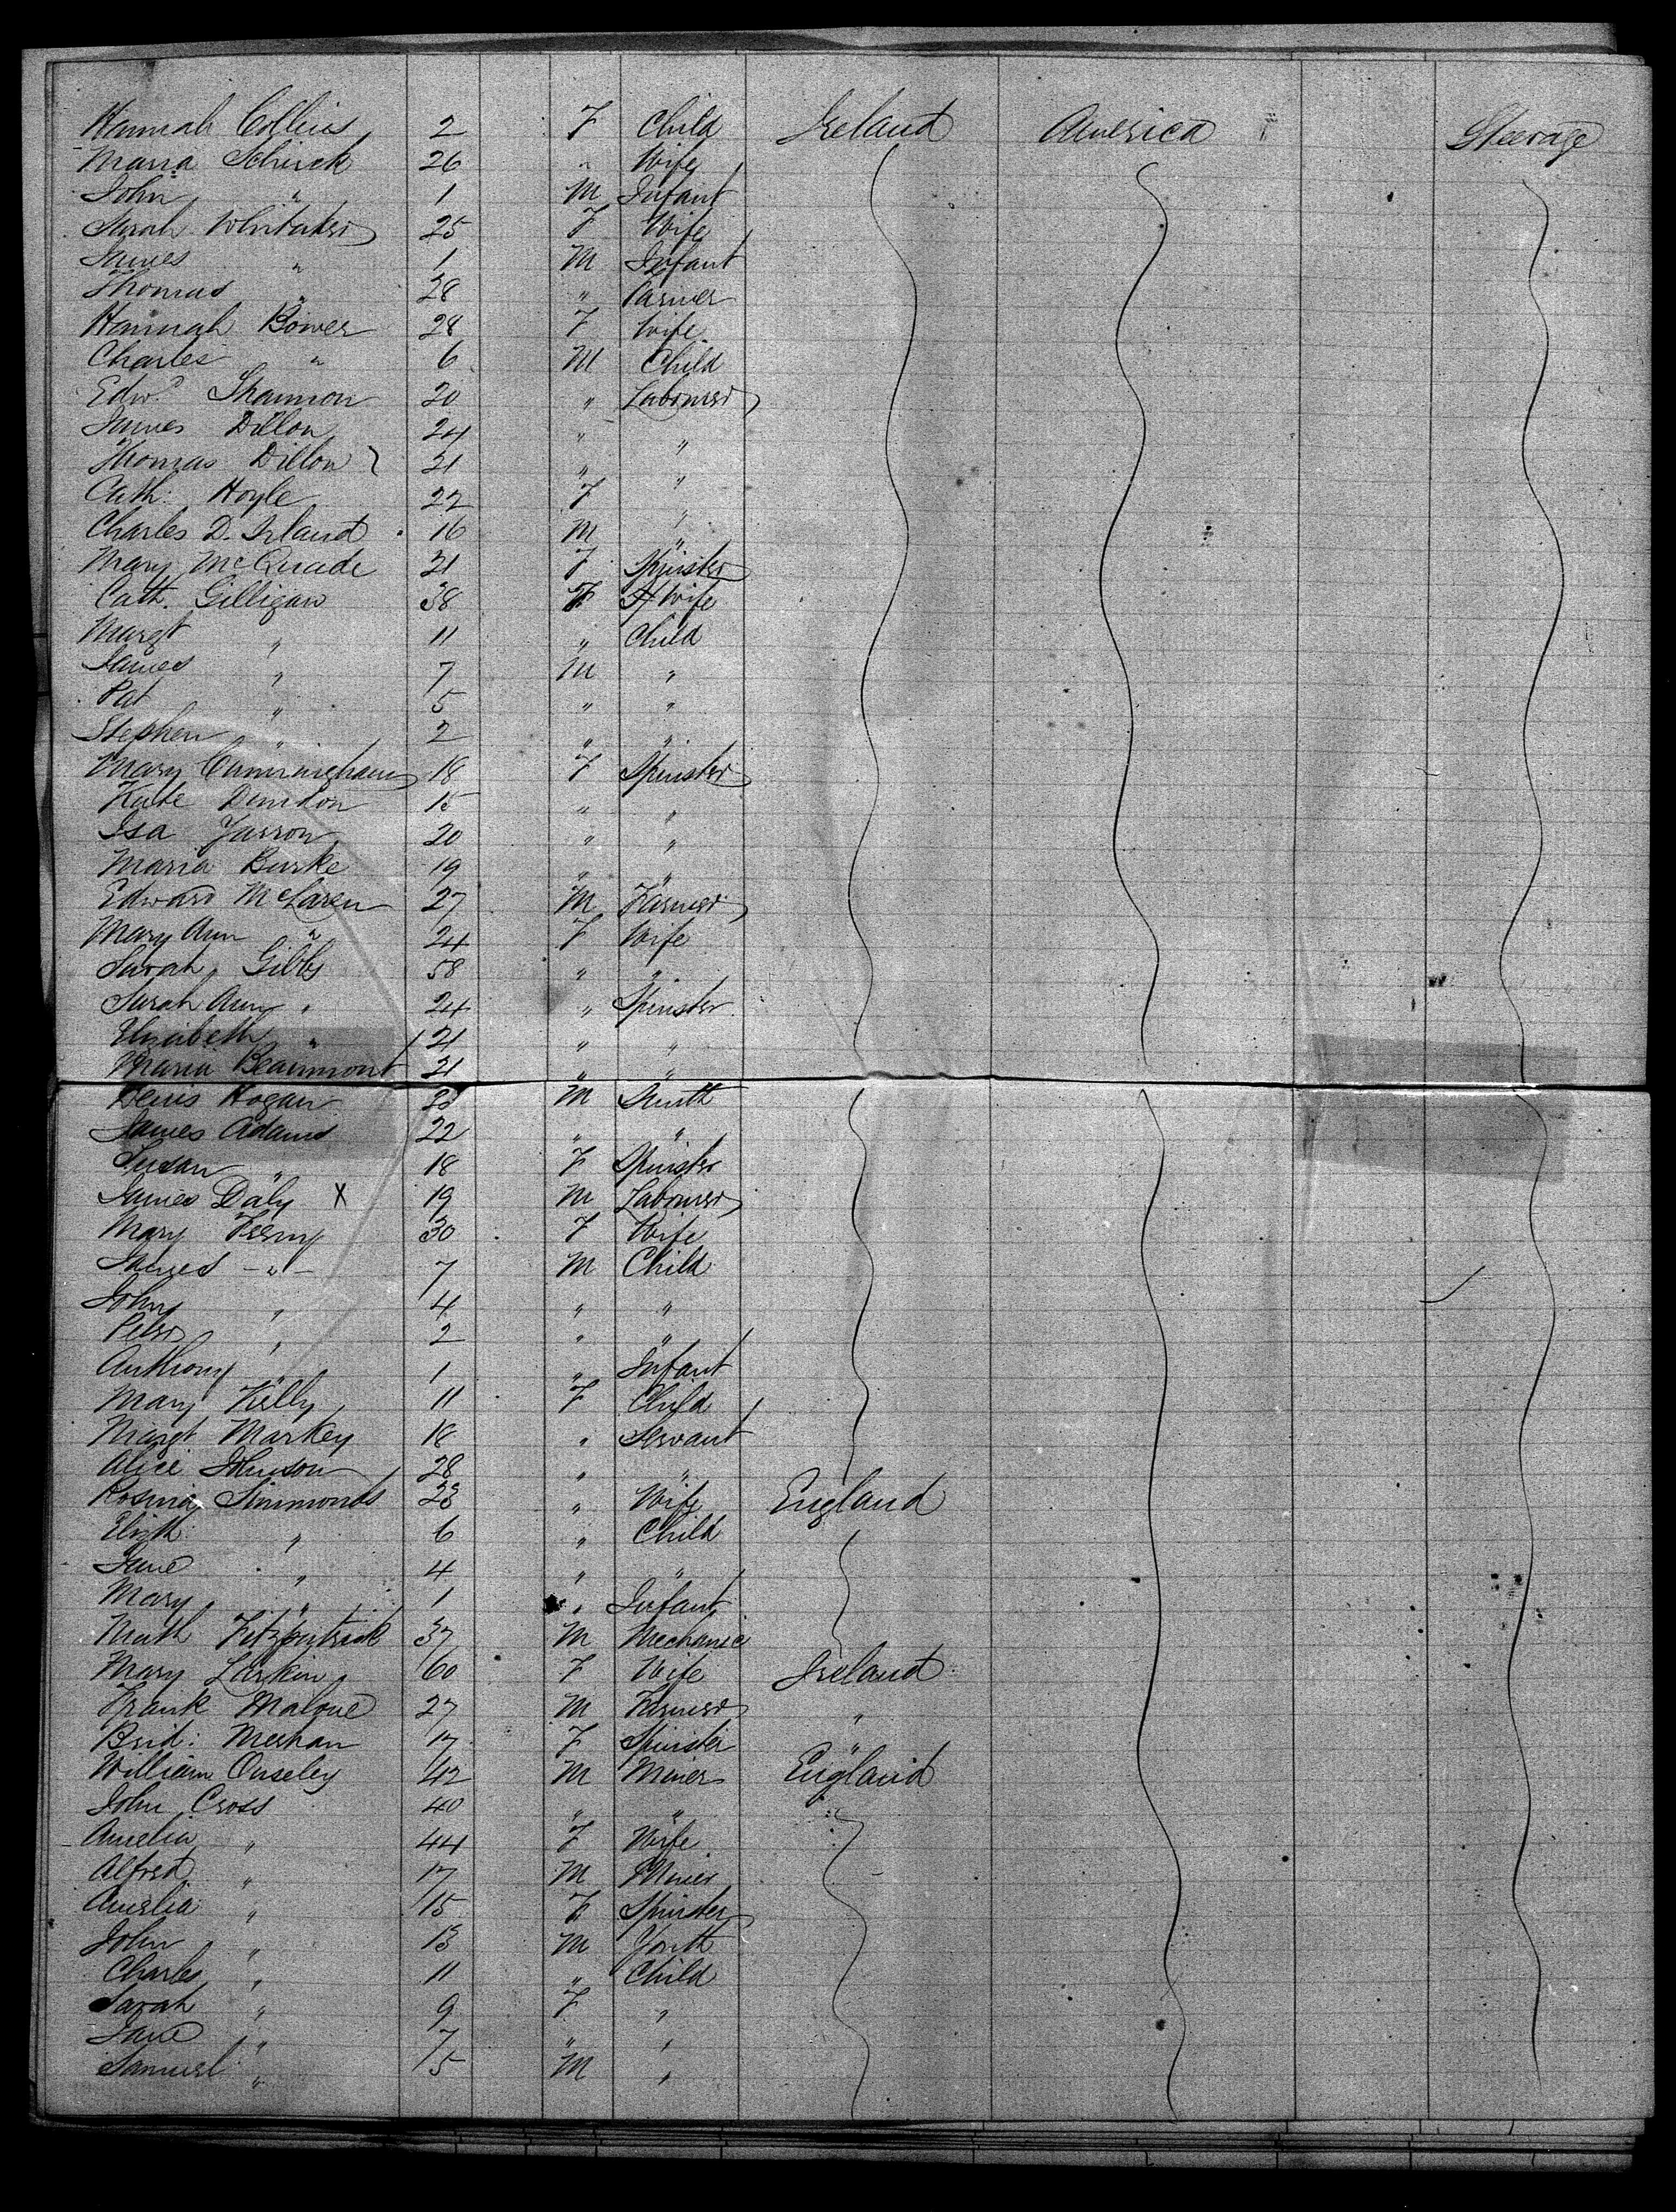 Hannah Collins 2 F Child Ireland America Steerage
Maria Schirck 26 " Wife
John " 1 M Infant
Sarah Whitaker 25 F Wife
James " 1 M Infant
Thomas " 28 " Farmer
Hannah Bower 28 F Wife
Charles " 6 M Child
Edwd Shannon 20 " Labourer
James Dillon 24 " "
Thomas Dillon 21 " "
Cath: Hoyle 22 F "
Charles D. Irland 16 M "
Mary McQuade 21 F Spinster
Cath. Gilligan 38 F Wife
Margt " 11 " Child
James " 7 M "
Pat " 5 " "
Stephen " 2 " "
Mary Cunningham 18 F Spinster
Kate 15 " "
Isa 20 " "
Maria Burke 19 " "
Edward McLaren 27 M Farmer
Mary Ann " 24 F Wife
Sarah Gibbs 58 " "
Sarah Ann " 24 " Spinster
Elizabeth " 21 " "
Maria Beaumont 21 " "
Denis Hogan M Smith
James Adams 22 " "
Susan " 18 F Spinster
James Daly X 19 M Labourer
Mary 30 F Wife
James -"- 7 M Child
John " 4 " "
Peter " 2 " "
Anthony " 1 " Infant
Mary Kelly 11 F Child
Margt Markey 18 " Servant
Alice Johnson 28 " "
Rosina Simmonds 23 " Wife England
Elizth " 6 " Child
Jane " 4 " "
Mary " 1 " Infant
Math Fitzpatrick 37 M Mechanic
Mary Larkin 60 F Wife Ireland
Frank Malone 27 M Farmer "
Brid: Meehan 17 F Spinster "
William Ouseley 42 M Miner England
John Cross 40 " "
Amelia " 44 F Wife
Alfred " 17 M Miner
Amelia " 15 F Spinster
John " 13 M Youth
Charles " 11 " Child
Sarah " 9 F "
Jane " 7 " "
Samuel " 5 M "